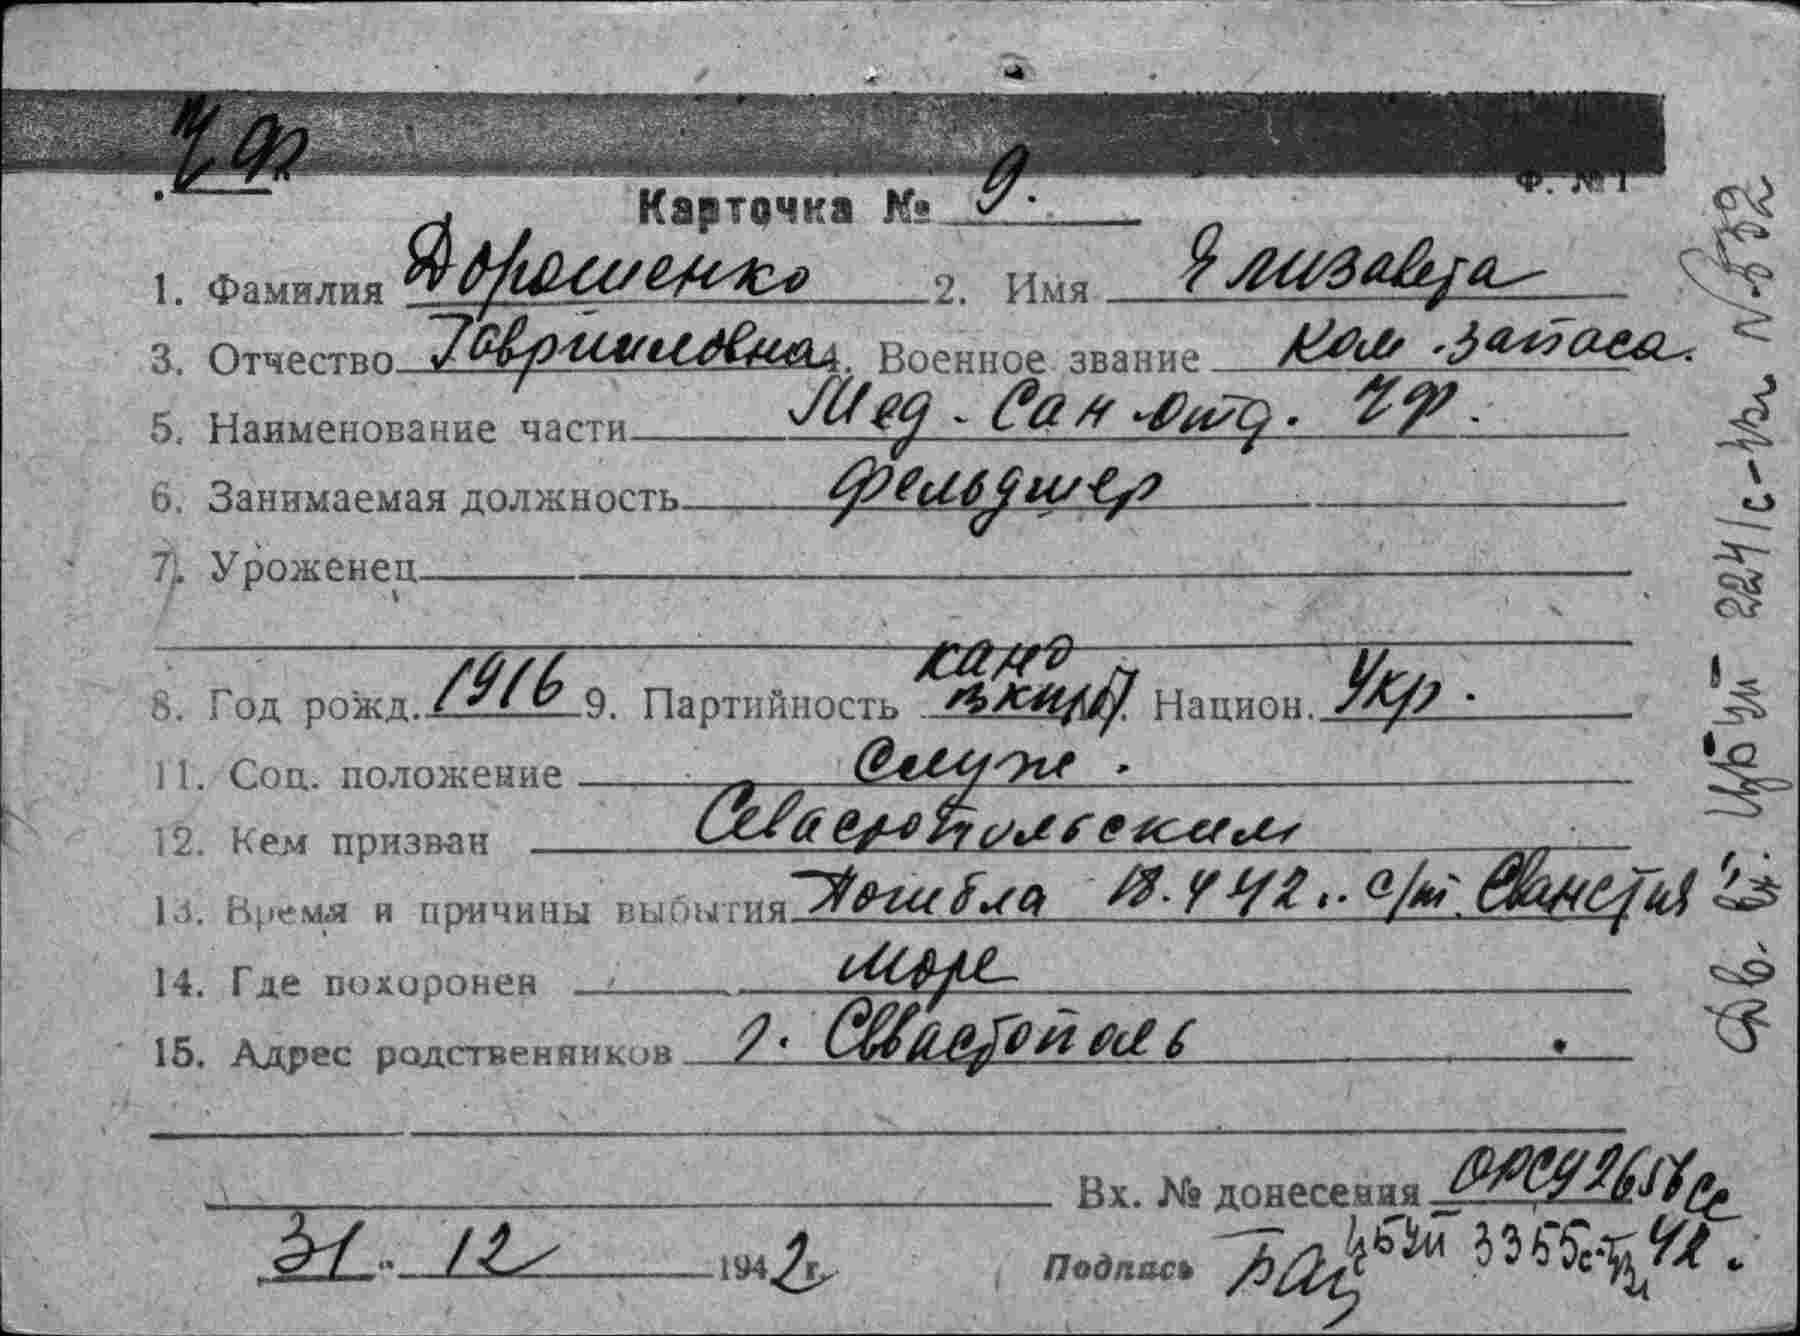 ЧФ
Ф. № 1
Карточка № 9.
1. Фамилия Дорошенко 2. Имя Елизавета
3. Отчество Гаврииловна 4. Военное звание Ком. запаса.
5. Наименование части Мед-Сан отд. ЧФ.
6. Занимаемая должность фельдшер
7. Уроженец
канд
8. Год рожд. 1916 9. Партийность ВКП(б) Национ. Укр.
11. Соц. положение служ.
12. Кем призван Севастопольским
13. Время и причины выбытия Погибла 18.4 42.. с/т. Сванетия
14. Где похоронен море
15. Адрес родственников г. Севастополь
Вх. № донесения ОРСУ 2656 сс
ЦБУП 3355с 42.
31. 12 1942 г. Подпись
вх. ЦБУП 224/с № 532